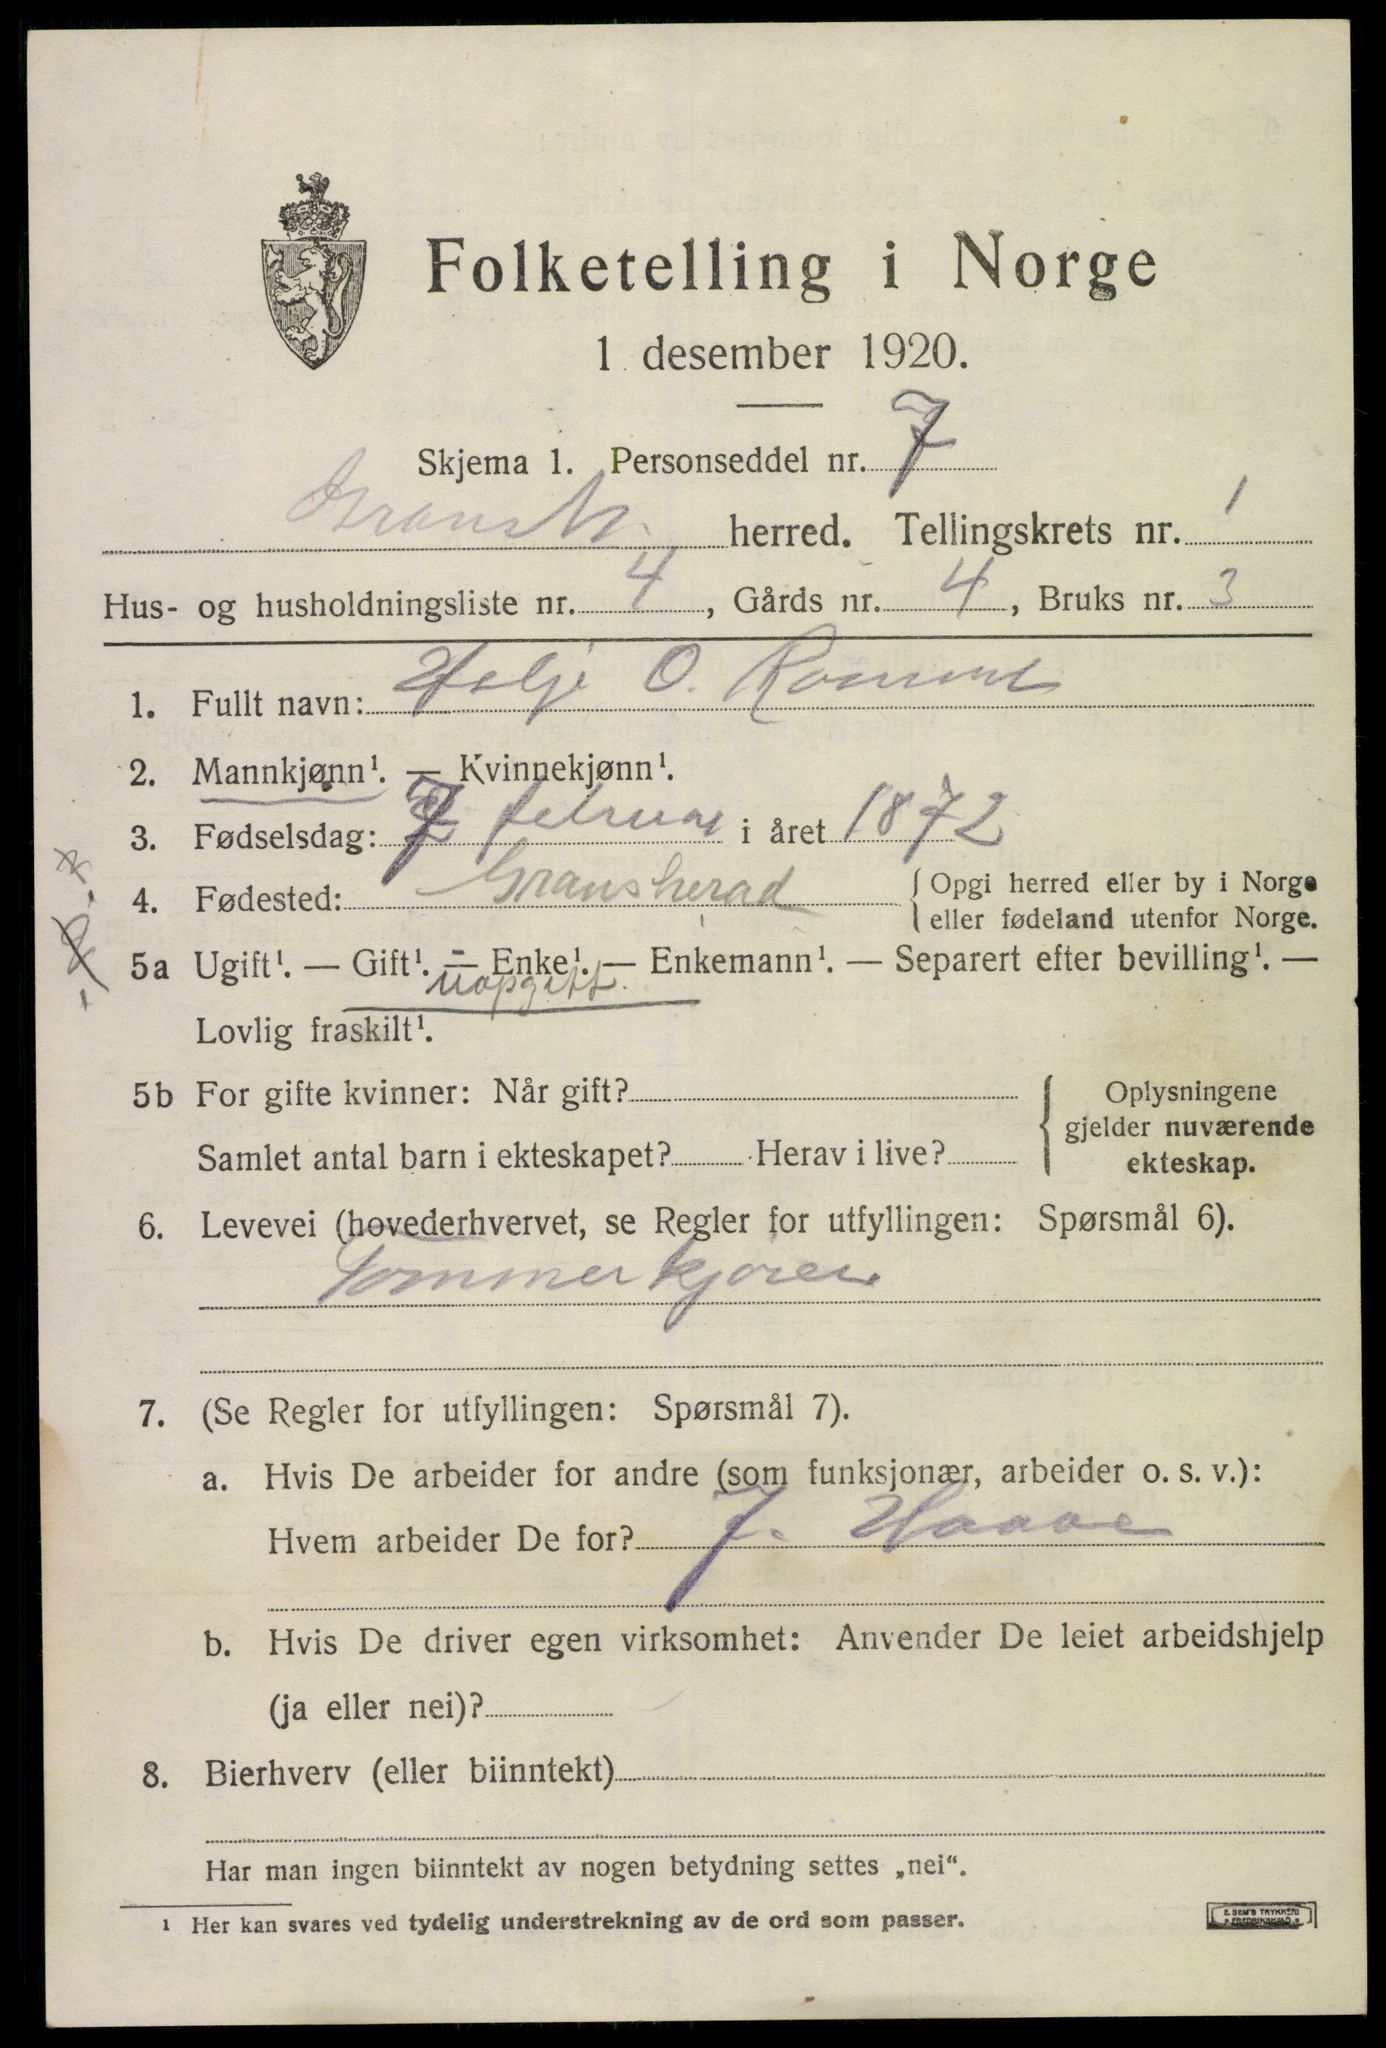 Folketelling i Norge
1 desember 1920.
Skjema 1. Personseddel nr. 7
herred. Tellingskrets nr. 1
Hus- og husholdningsliste nr. 4, Gårds nr. 4, Bruks nr. 3
1. Fullt navn: O.
2. Mannkjønn¹. — Kvinnekjønn¹.
3. Fødselsdag: 7 februar i året 1872
4. Fødested: Gransherad { Opgi herred eller by i Norge
eller fødeland utenfor Norge.
5a Ugift¹. — Gift¹. — Enke¹. — Enkemann¹. — Separert efter bevilling¹. —
uopgitt.
Lovlig fraskilt¹.
5b For gifte kvinner: Når gift?
Samlet antal barn i ekteskapet? Herav i live?
Oplysningene
gjelder nuværende
ekteskap.
6. Levevei (hovederhvervet, se Regler for utfyllingen: Spørsmål 6).
Tømmerkjører
7. (Se Regler for utfyllingen: Spørsmål 7).
a. Hvis De arbeider for andre (som funksjonær, arbeider o. s. v.):
Hvem arbeider De for? J. Haave
b. Hvis De driver egen virksomhet: Anvender De leiet arbeidshjelp
(ja eller nei)?
8. Bierhverv (eller biinntekt)
Har man ingen biinntekt av nogen betydning settes „nei“.
¹ Her kan svares ved tydelig understrekning av de ord som passer.
E. SEM'S TRYKKERI
FREDRIKSHALD